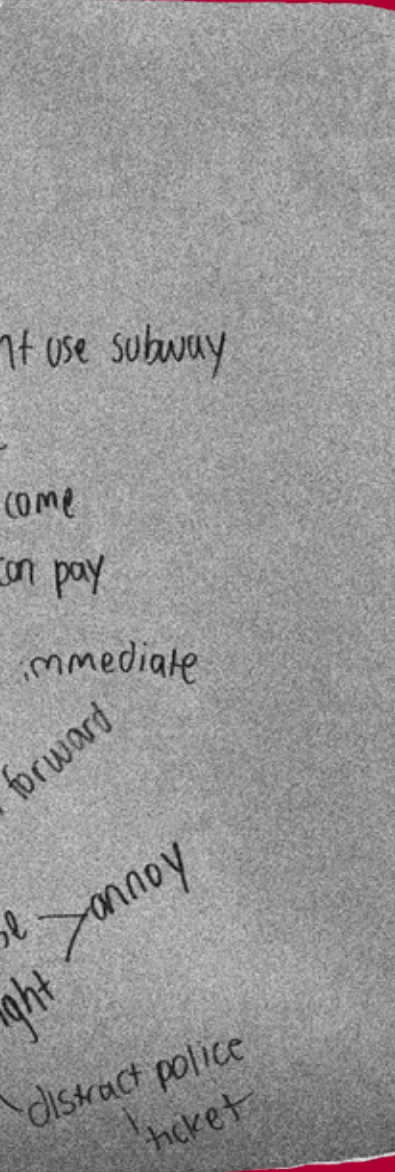 use subway
come
pay
immediate
forward
annoy
distract police
ticket